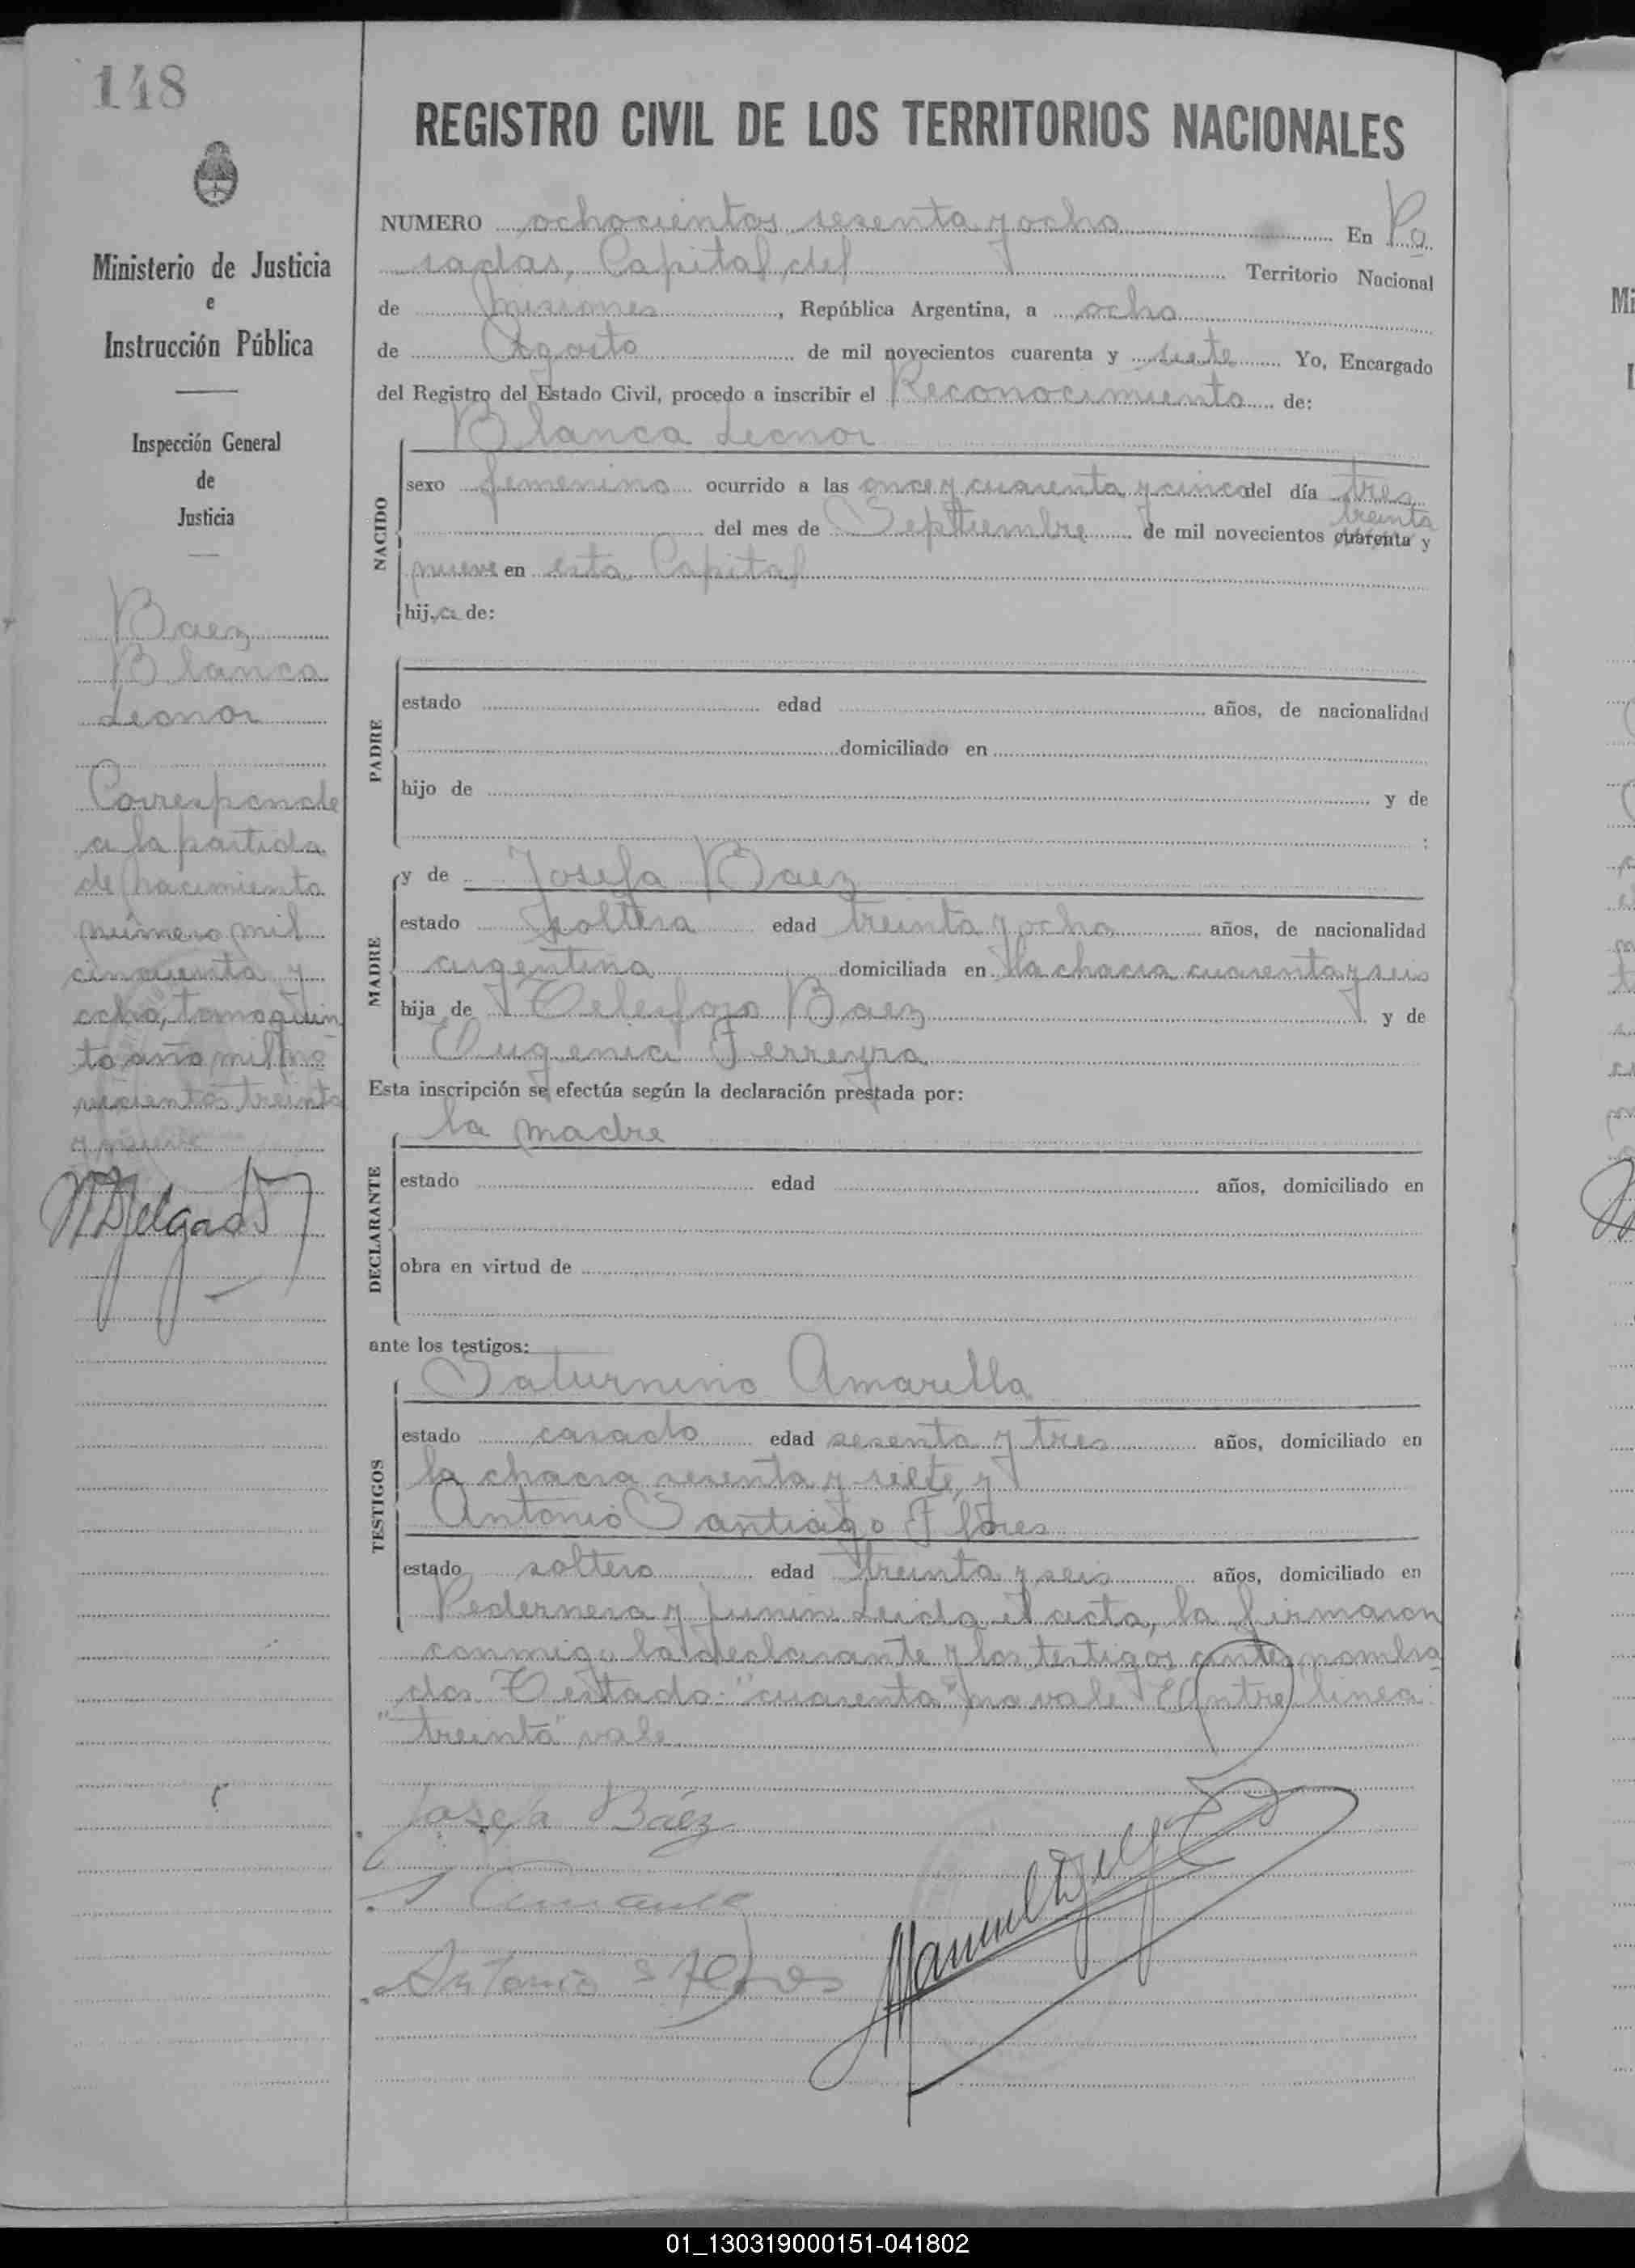 148
Ministerio de Justicia
e
Instrucción Pública
Inspección General
de
Justicia
Baez
Blanca
Leonor
Corresponde
a la partida
de nacimiento
número mil
cincuenta y
ocho, tomo quin
to año mil no
vecientos treinta
y nueve
M Delgado
REGISTRO CIVIL DE LOS TERRITORIOS NACIONALES
NUMERO ochocientos sesenta y ocho En Po
sadas, Capital del Territorio Nacional
de Misiones, República Argentina, a ocho
de Agosto de mil novecientos cuarenta y siete Yo, Encargado
del Registro del Estado Civil, procedo a inscribir el Reconocimiento de:
Blanca Leonor
NACIDO
sexo femenino ocurrido a las once y cuarenta y cinco del día tres
treinta
del mes de Septiembre de mil novecientos cuarenta y
nueve en esta Capital
hij a de:
PADRE
estado edad años, de nacionalidad
domiciliado en
hijo de y de
:
MADRE
y de Josefa Baez
estado soltera edad treinta y ocho años, de nacionalidad
argentina domiciliada en la chacra cuarenta y seis
hija de Telesforo Baez y de
Eugenia Ferreyra
Esta inscripción se efectúa según la declaración prestada por:
la madre
DECLARANTE
estado edad años, domiciliado en
obra en virtud de
ante los testigos:
TESTIGOS
Saturnino Amarilla
estado casado edad sesenta y tres años, domiciliado en
la chacra sesenta y siete, y
Antonio Santiago Flores
estado soltero edad treinta y seis años, domiciliado en
Pedernera y Junin Leida el acta, la firmaron
conmigo la declarante y los testigos antes nombra
dos Testado: "cuarenta" no vale Entre linea:
"treinta" vale
Josefa Báez
Antonio S Flores
Manuel Delg
01_130319000151-041802